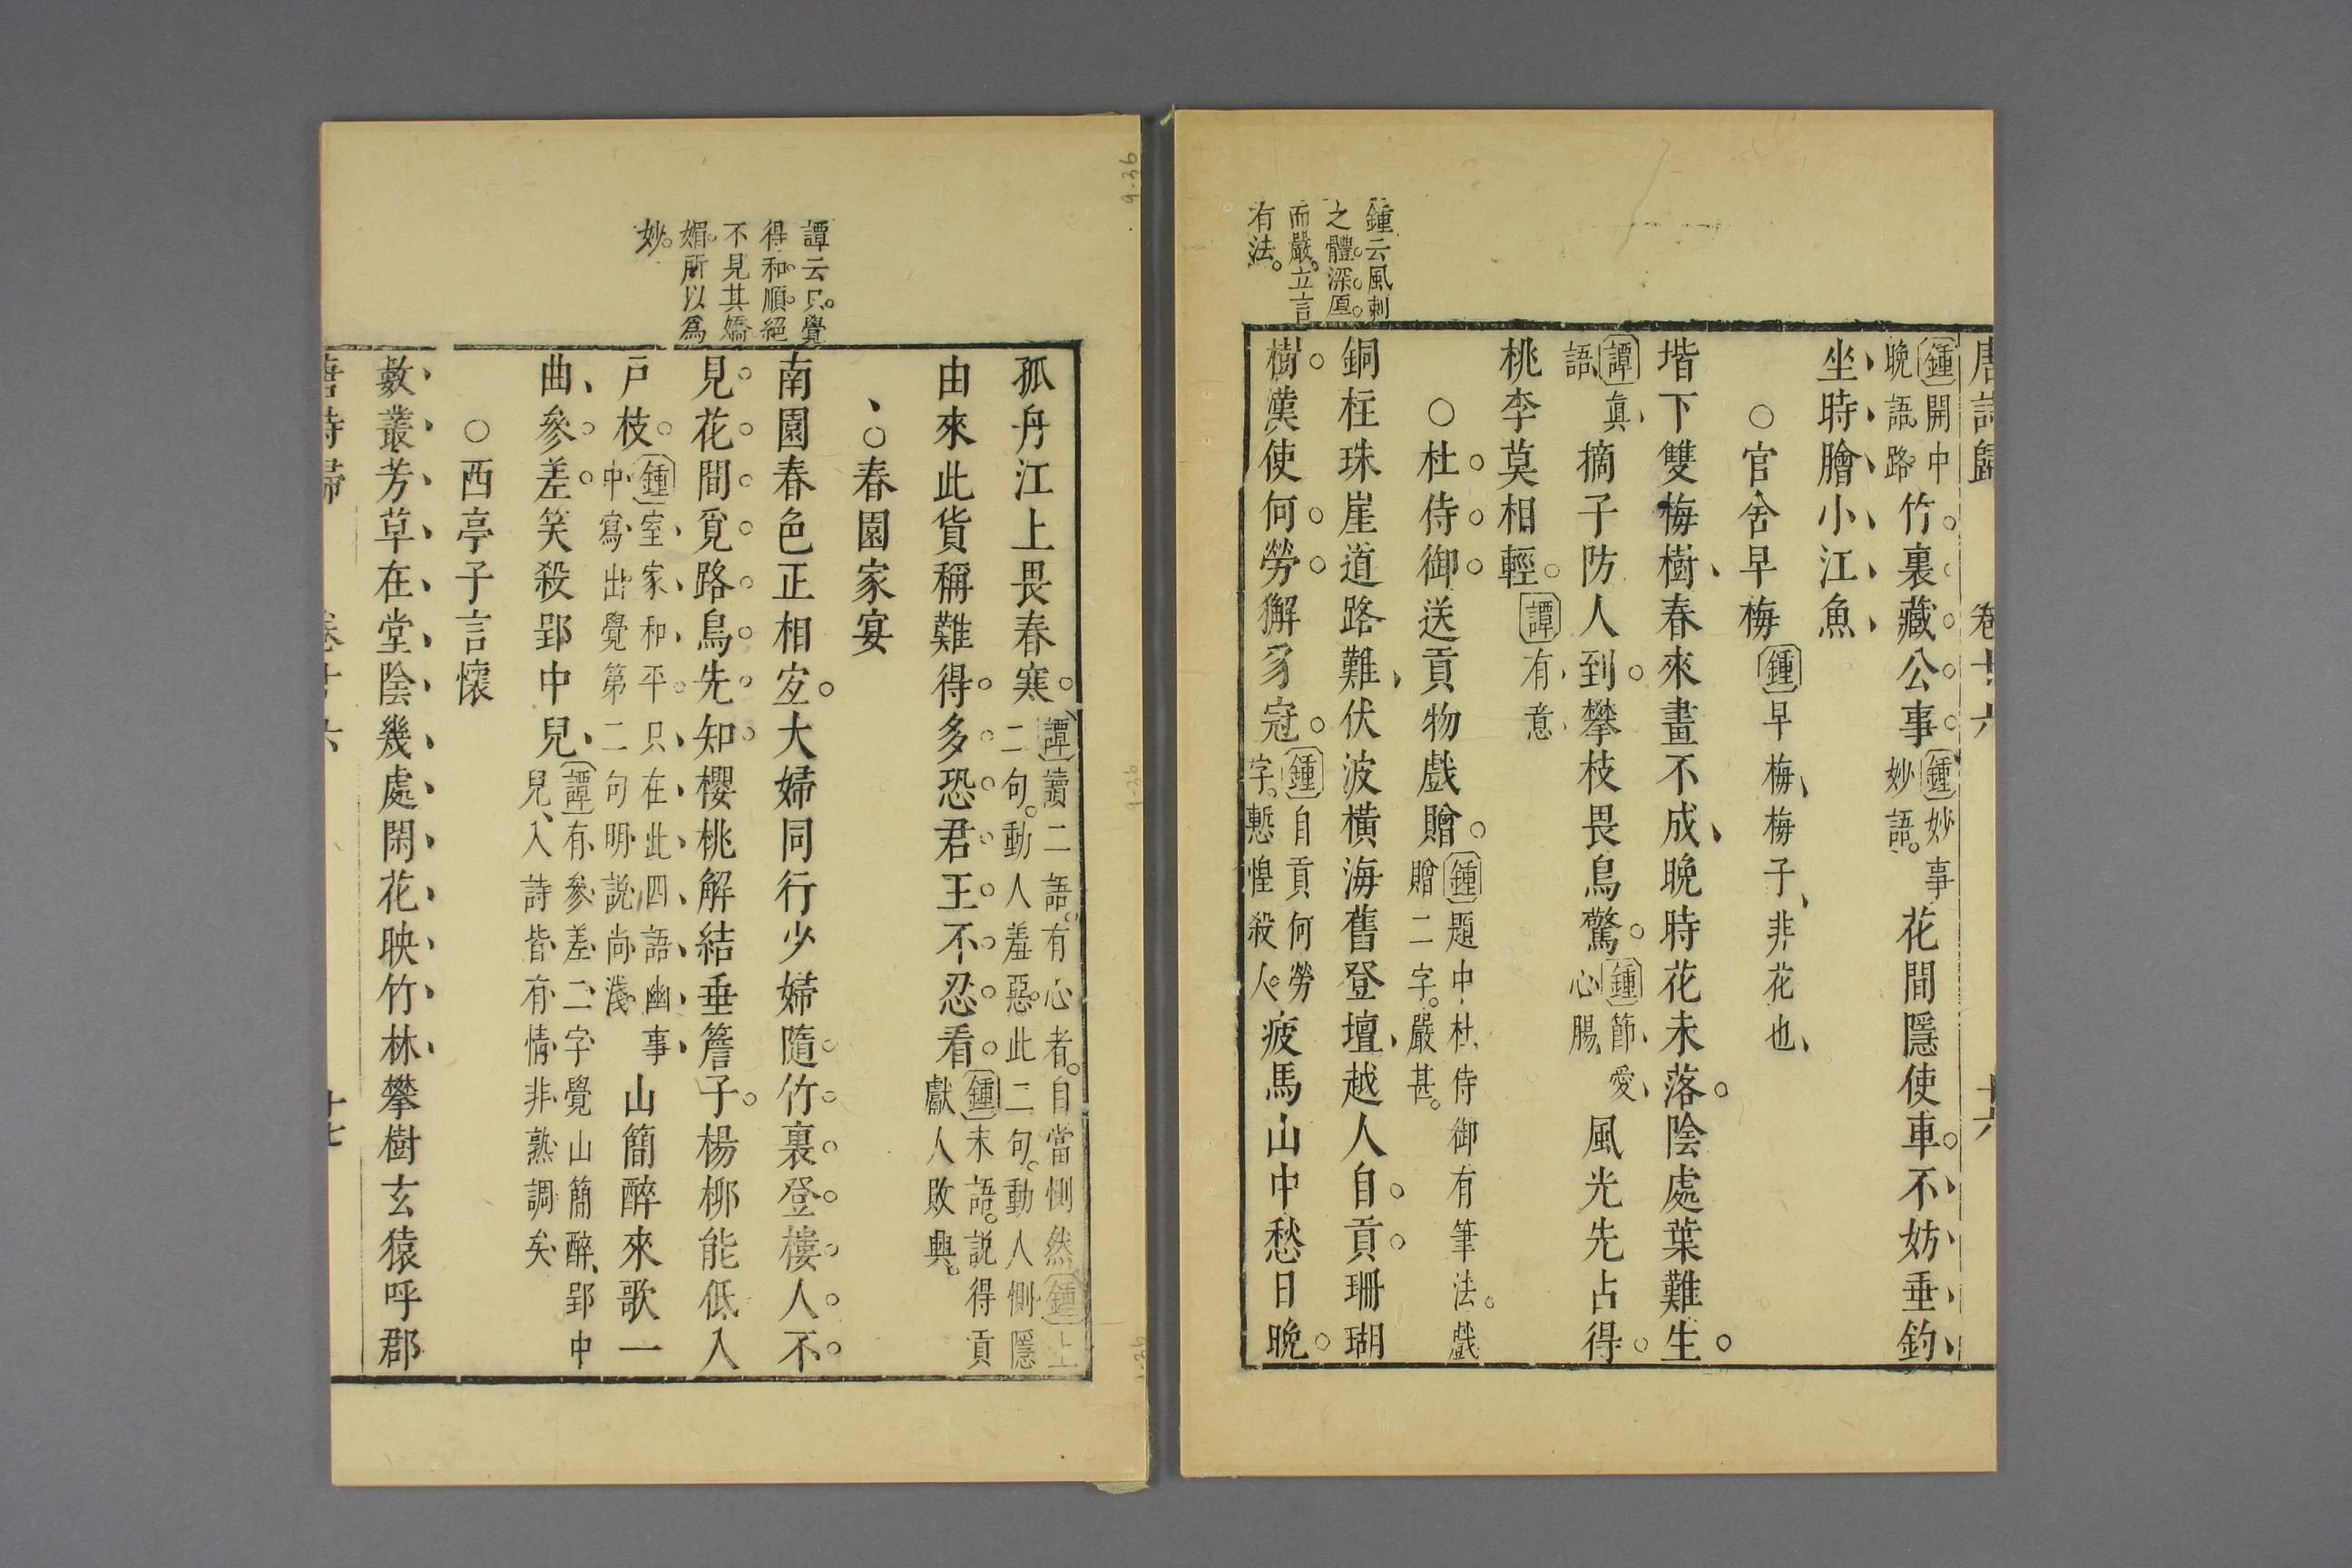 唐詩歸 卷十六 十六
鍾開中晚語路 竹裏藏公事 鍾妙事妙語 花間隱使車不妨垂釣
坐時膾小江魚
○官舍早梅 鍾早梅梅子非花也
堦下雙梅樹春來畫不成晚時花未落陰處葉難生
譚真語 摘子防人到攀枝畏鳥驚 鍾節愛心腸 風光先占得
桃李莫相輕 譚有意
○杜侍御送貢物戲贈 鍾題中杜侍御有筆法戲贈二字嚴甚
銅柱珠崖道路難伏波橫海舊登壇越人自貢珊瑚
樹漢使何勞獬豸冠 鍾自貢何勞字慙惶殺人 疲馬山中愁日晚
鍾云風刺
之體深厚
而嚴立言
有法
孤舟江上畏春寒 譚讀二語有心者自當惻然 鍾上二句動人羞惡此二句動人惻隱
由來此貨稱難得多恐君王不忍看 鍾末語說得貢獻人敗興
○春園家宴
南園春色正相宜大婦同行少婦隨竹裏登樓人不
見花間覓路鳥先知櫻桃解結垂簷子楊柳能低入
戶枝 鍾室家和平只在此四語幽事中寫出覺第二句明說尚淺 山簡醉來歌一
曲參差笑殺郢中兒 譚有參差二字覺山簡醉郢中兒入詩皆有情非熟調矣
○西亭子言懷
數叢芳草在堂陰幾處閑花映竹林攀樹玄猿呼郡
唐詩歸 卷十六 十七
譚云只覺
得和順絕
不見其嬌
媚所以為
妙